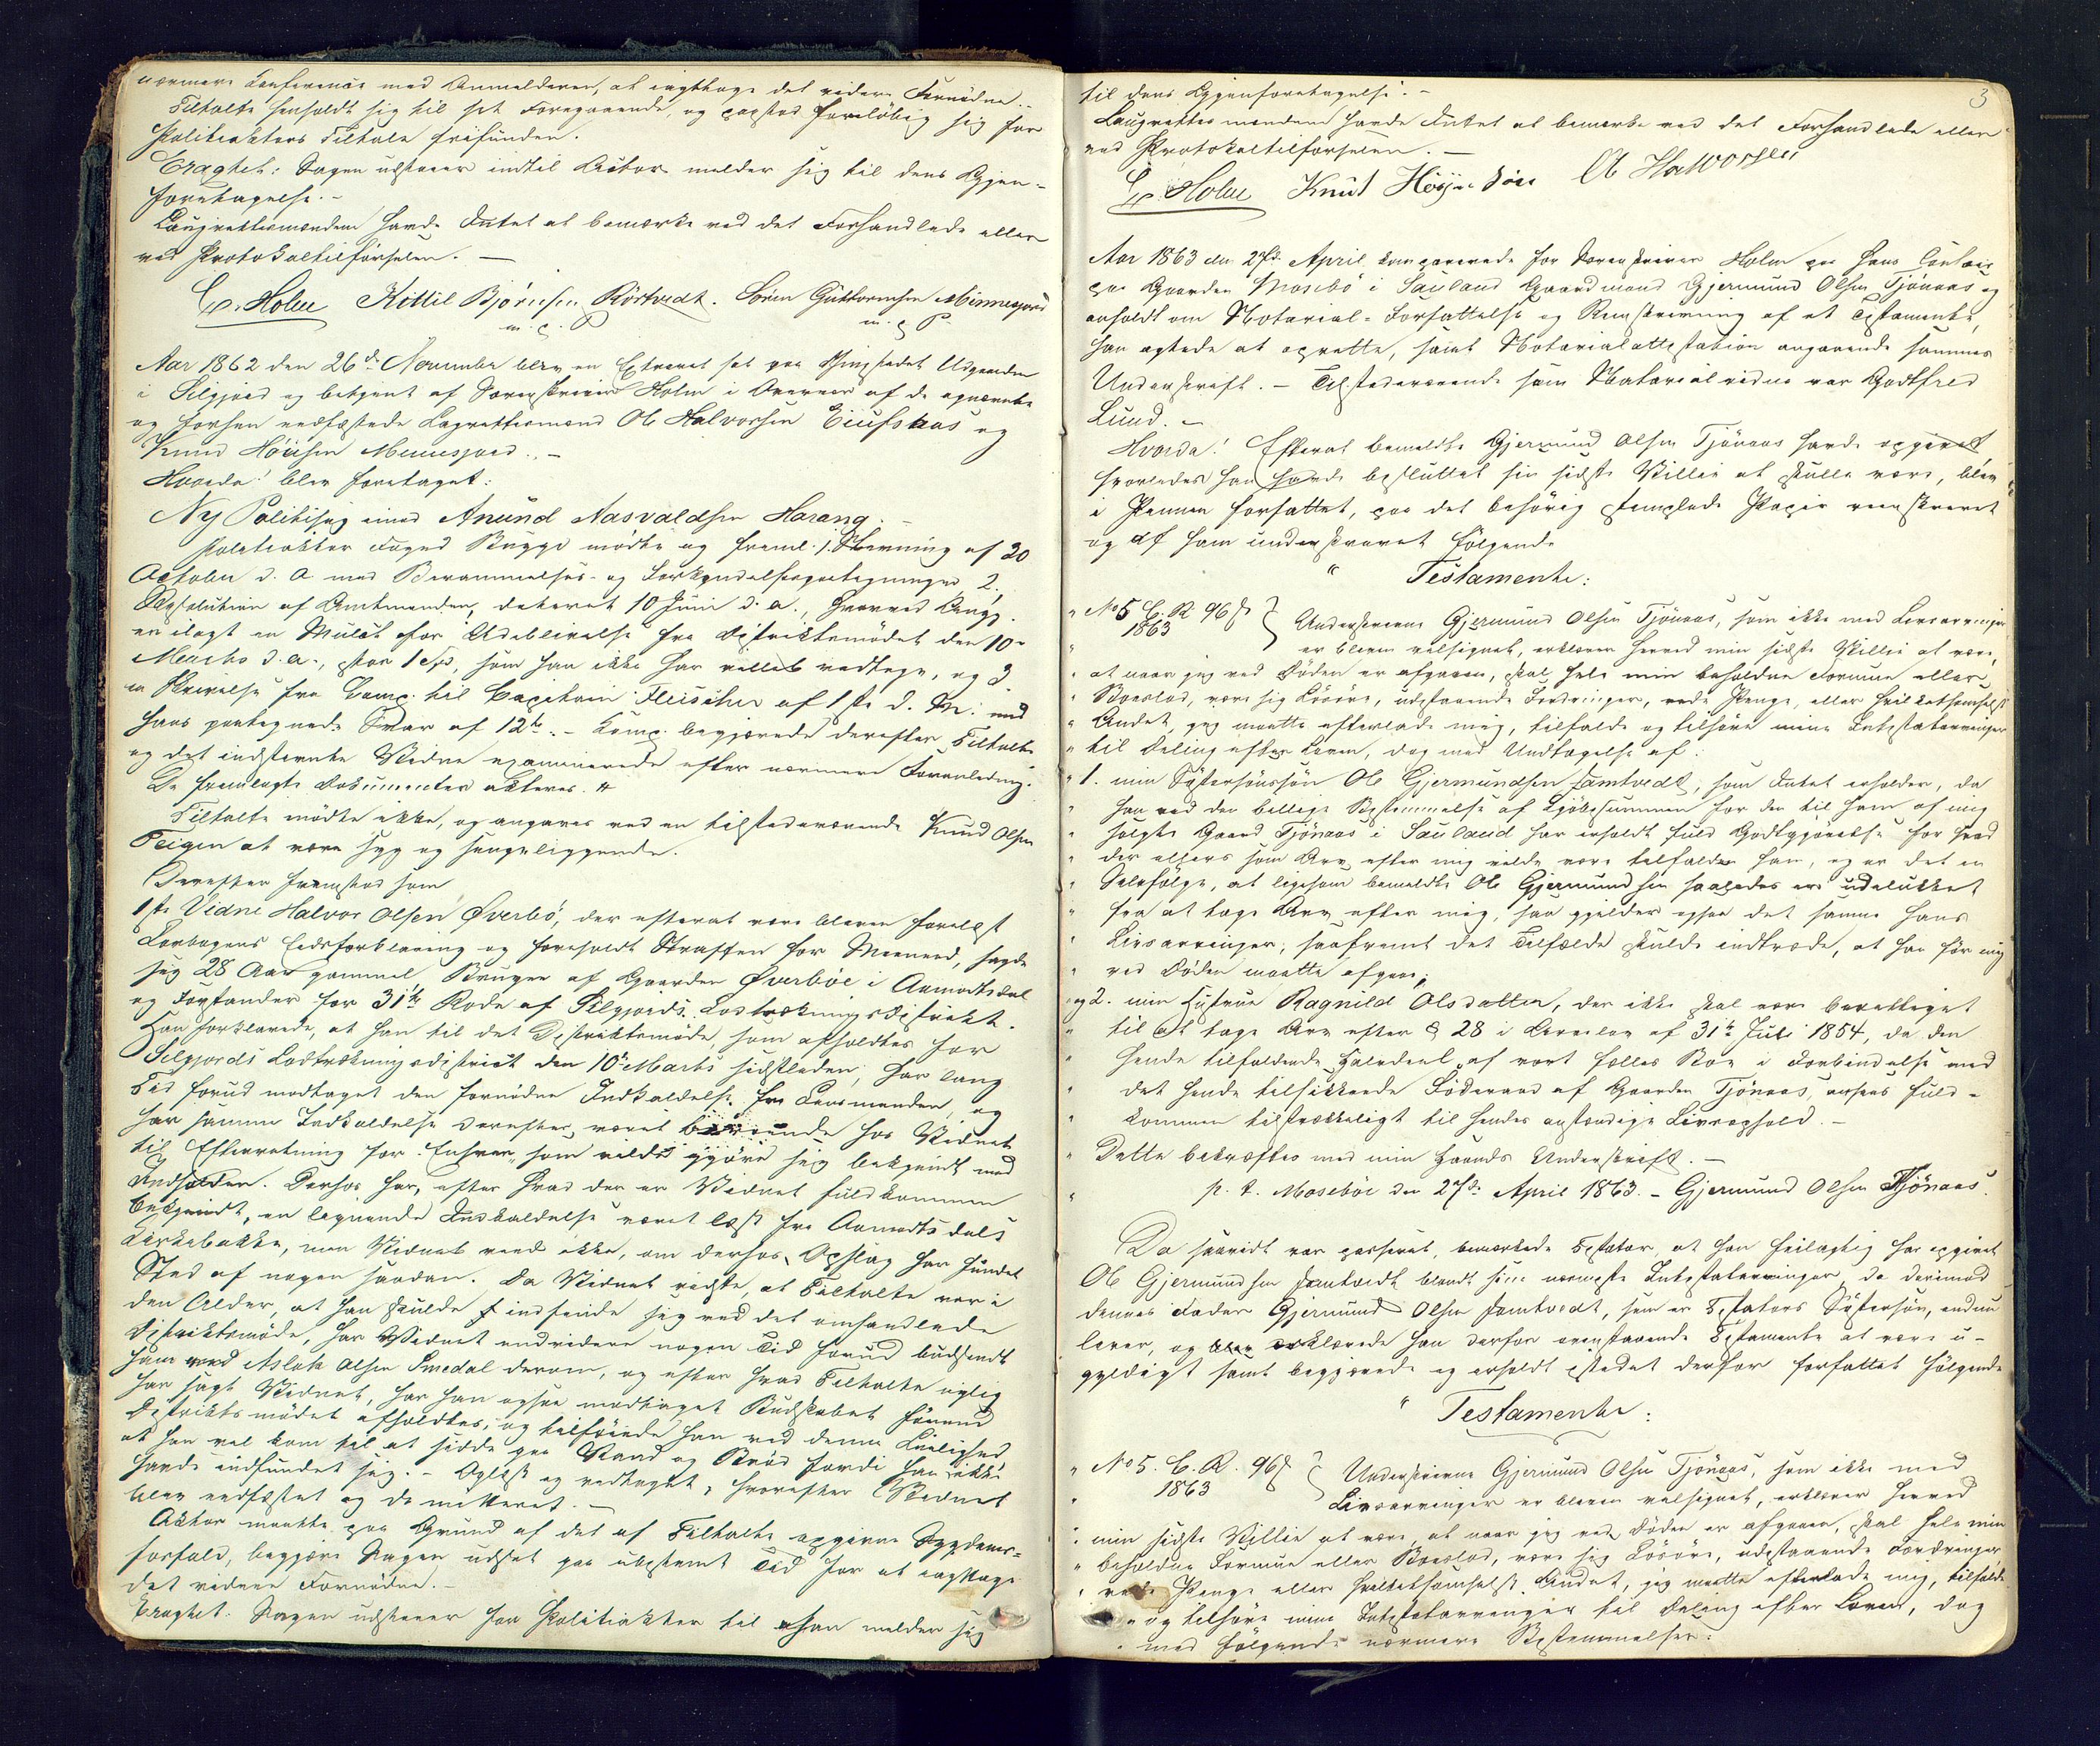 nærmere Conference med Anmelderen, at iagttage det videre Fornødne.-
Tiltalte henholdt sig til sit Foregaaende, og paastod foreløbig sig for
Politiaktors Tiltale frifunden.
Eragtet: Sagen udstaaer indtil Actor melder sig til dens Gjen-
foretagelse.-
Laugrettesmændene havde Intet at bemærke ved det Forhandlede eller
ved Protokoltilførselen.-
Chr. Holm Kittil Bjørnsen Rörtvedt. Sören Guttormsen Minnesjord
m. p. P. m. p P.
Aar 1862 den 26de November blev en Extraret sat paa Thingstedet Udgaarden
i Siljord og betjent af Sorenskriver Holm i Overvær af de opnævnte
og forhen eedfæstede Lagrettesmænd Ole Halvorsen Eiufsaas og
Knud Höiesen Minnesjord.-
Hvorda! blev foretaget:
Ny Politisag imod Anund Aasvaldsen Harang.-
Politiakter Foged Bugge mödte og freml. 1. Stævning af 20
October d. A. med Berammelses- og Forkyndelsespaategninger, 2.
Resolution af Amtmanden, dateret 10 Juni d. a., hvorved Ang.
er ilagt en Mulct for Udeblivelse fra Distriktsmödet den 10de
Marts d. a., stor 1 Spd, som han ikke har villet vedtage, og 3.
en Skrivelse fra Comp. til Capitain Fleischer af 1ste d. M. med
hans paategnede Svar af 12te.- Komp. begjærede derefter Tiltalte
og det indstævnte Vidne examinerede efter nærmere Foranledning.
De fremlagte Dokumenter akteres.
Tiltalte mödte ikke, og angaves ved en tilstedeværende Knud Olsen
Teigen at være syg og sengeliggende.
Derefter fremstod som
1ste Vidne Halvor Olsen Øverbö, der efterat være bleven forelæst
Lovbogens Eedsforklaring og foreholdt Straffen for Meeneed, sagde
sig 28 Aar gammel, Bruger af Gaarden Øverböe i Aamotsdal
og Forstander for 31te Rode af Siljords Lodtrækningsdistrikt.
Han forklarede, at han til det Distriktsmöde, som afholdtes for
Siljords Lodtrækningsdistrict den 10de Marts sidstleden, har lang
Tid forud modtaget den fornödne Indkaldelse fra Lensmanden, og
har samme Indkaldelse derefter været beroende hos Vidnet
til Efterretning for Enhver, som vilde gjöre sig bekjendt med
Indholdet. Derhos har, efter hvad der er Vidnet fuldkommen
bekjendt, en lignende Indkaldelse været læst fra Aamotsdals
Kirkebakke, men Vidnet veed ikke, om derhos Opslag har fundet
Sted af nogen saadan. Da Vidnet vidste, at Tiltalte var i
den Alder, at han skulde indfinde sig ved det omhandlede
Distriktsmöde, har Vidnet endvidere nogen Tid forud budsendt
ham ved Aslak Olsen Smedal derom, og efter hvad Tiltalte nylig
har sagt Vidnet, har han ogsaa modtaget Budskabet förend
Distriktsmödet afholdtes, og tilföiede han ved denne Leilighed
at han vel kom til at sidde paa Vand og Bröd fordi han ikke
havde indfundet sig.- Oplæst og vedtaget, hvorefter Vidnet
blev eedfæstet og dimitteret.-
Aktor maatte paa Grund af det af Tiltalte opgivne Sygdoms-
forfald, begjære Sagen udsat paa ubestemt Tid for at iagttage
det videre Fornödne.-
Eragtet: Sagen udstaaer for Politiakter til han melder sig
3
til dens Gjenforetagelse.-
Laugrettesmændene havde Intet at bemærke ved det Forhandlede eller
ved Protokoltilførselen.-
Chr. Holm Knut Höyesön Ole Halvorsen
Aar 1863 den 27de April comparerede for Sorenskriver Holm paa hans Contoir
paa Gaarden Mosebö i Sauland Gaardmand Gjermund Olsen Tjönaas og
anholdt om Notarial-Forfattelse og Renskrivning af et Testamente,
han agtede at oprette, samt Notarialattestation angaaende sammes
Underskrift.- Tilstedeværende som Notarialvidne var Godtfred
Lund.-
Hvorda! Efterat bemeldte Gjermund Olsen Tjönaas havde opgivet
hvorledes han havde besluttet sin sidste Villie at skulle være, blev
i Pennen forfattet, paa det behörig stemplede Papir reenskrevet
og af ham underskrevet Fölgende
" Testamente:
" No 5 C. R. 96 ß Underskrevne Gjermund Olsen Tjönaas, som ikke med Livsarvinger
1863
" er bleven velsignet, erklærer herved min sidste Villie at være,
" at naar jeg ved Döden er afgaaen, skal hele min beholdne Formue eller
" Boeslod, være sig Lösöre, udstaaende Fordringer, rede Penge, eller hvilketsomhelst
" Andet, jeg maatte efterlade mig, tilfalde og tilhöre mine Intestatarvinger
" til Deling efter Loven, dog med Undtagelse af:
" 1. min Söstersönssön Ole Gjermundsen Jamtvedt, som Intet erholder, da
" han ved den billige Bestemmelse af Kjöbesummen for den til ham af mig
" solgte Gaard Tjönaas i Sauland har erholdt fuld Godtgjörelse for hvad
" der ellers som Arv efter mig vilde være tilfalden ham, og er det en
" Selvfölge, at ligesom bemeldte Ole Gjermundsen saaledes er udelukket
" fra at tage Arv efter mig, saa gjelder ogsaa det samme hans
" Livsarvinger, saafremt det Tilfælde skulde indtræde, at han för mig
" ved Döden maatte afgaae;
" og 2. min Hustrue Ragnild Olsdatter, der ikke skal være berettiget
" til at tage Arv efter § 28 i Arvelov af 31te Juli 1854, da den
" hende tilfaldende Halvdeel af vort fælles Boe i Forbindelse med
" det hende tilsikkrede Föderaad af Gaarden Tjönaas, ansees fuld-
" kommen tilstrækkeligt til hendes anstændige Livsophold.-
" Dette bekræftes med min Haands Underskrift.-
" p. t. Moseböe den 27de April 1863.- Gjermund Olsen Tjönaas.
Da saavidt var passeret, bemærkede Testator, at han feilagtig har opgivet
Ole Gjermundsen Jamtvedt blandt sine nærmeste Intestatarvinger, da derimod
dennes Fader Gjermund Olsen Jamtvedt, som er Testators Söstersön, endnu
lever, og erklærede han derfor ovenstaaende Testamente at være u-
gyldigt samt begjærede og erholdt istedet derfor forfattet fölgende
" Testamente:
" No 5. C. R. 96 ß Underskrevne Gjermund Olsen Tjönaas, som ikke med
" 1863 Livsarvinger er bleven velsignet, erklærer herved
" min sidste Villie at være, at naar jeg ved Döden er afgaaen, skal hele min
" beholdne Formue eller Boeslod, være sig Lösöre, udestaaende Fordringer
" rede Penge eller hvilketsomhelst Andet, jeg maatte efterlade mig, tilfalde
" og tilhöre mine Intestatarvinger til Deling efter Loven, dog
" med fölgende nærmere Bestemmelser: